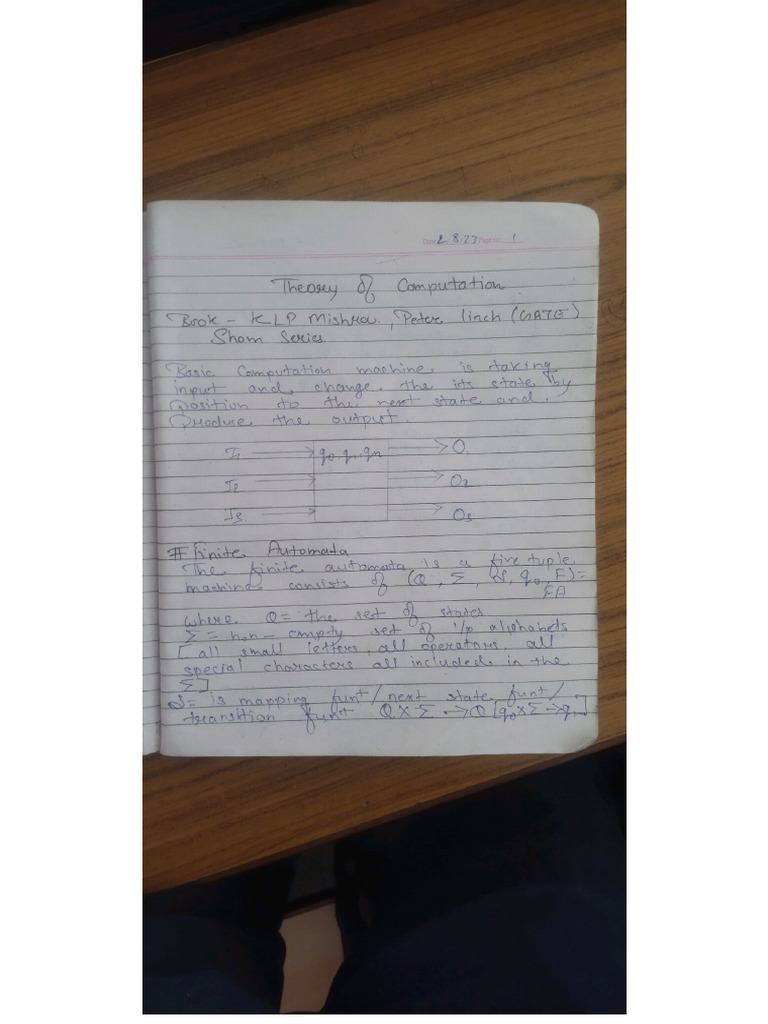 Date 2.8.23 Page no. 1
Theory of Computation
Book - KLP Mishra, Peter Linch (GATE)
Shom Series
Basic Computation machine is taking
input and change the its state by
position to the next state and
produce the output.
I1 q0, q1, qn O1
I2 O2
I3 O3
# Finite Automata
The finite automata is a five tuple
machine consists of (Q, Σ, δ, q0, F) =
FA
where Q = the set of states
Σ = non-empty set of i/p alphabets
[all small letters, all operators, all
special characters all included in the
Σ]
δ = is mapping funt/next state funt/
transition funt Q×Σ → Q [q0×Σ → q1]